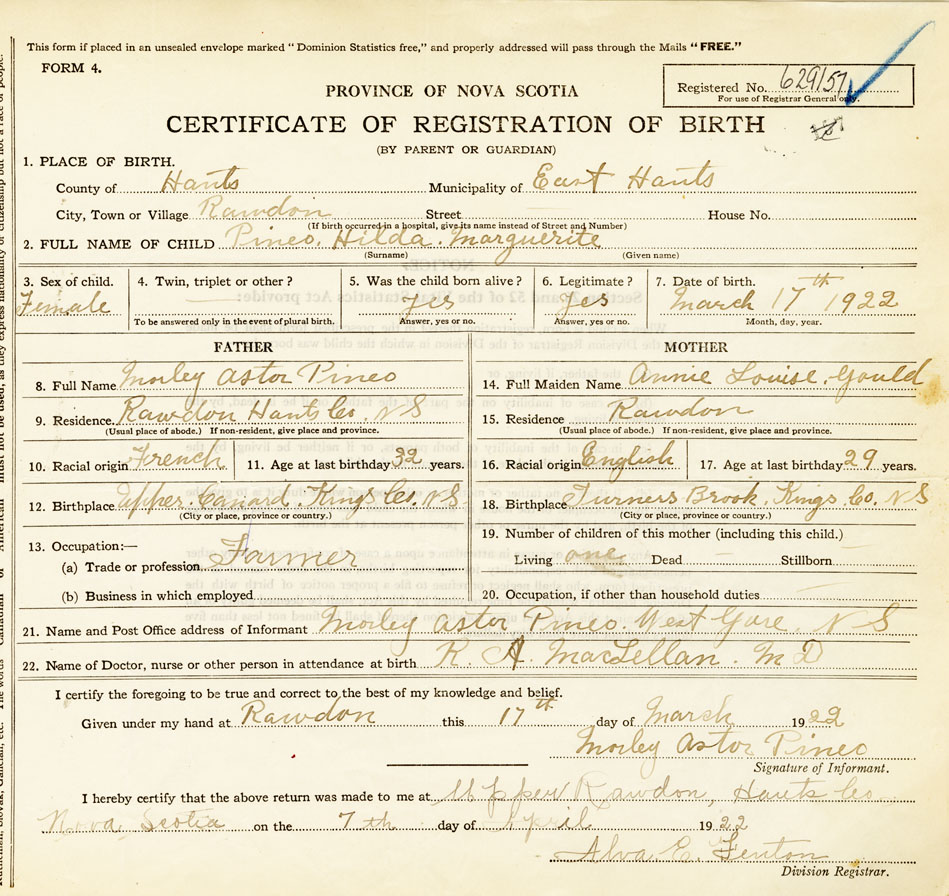 This form if placed in an unsealed envelope marked "Dominion Statistics free," and properly addressed will pass through the Mails "FREE."
FORM 4.
Registered No. 629151
For use of Registrar General only.
PROVINCE OF NOVA SCOTIA
CERTIFICATE OF REGISTRATION OF BIRTH
(BY PARENT OR GUARDIAN)
1. PLACE OF BIRTH.
County of Hants Municipality of East Hants
City, Town or Village Rawdon Street House No.
(If birth occurred in a hospital, give its name instead of Street and Number)
2. FULL NAME OF CHILD Pineo, Hilda. Marguerite
(Surname) (Given name)
3. Sex of child. 4. Twin, triplet or other? 5. Was the child born alive? 6. Legitimate? 7. Date of birth.
Female yes Yes March 17th 1922
To be answered only in the event of plural birth. Answer, yes or no. Answer, yes or no. Month, day, year.
FATHER MOTHER
8. Full Name Morley Astor Pineo 14. Full Maiden Name Annie Louise. Gould
9. Residence. Rawdon Hants Co. N S 15. Residence Rawdon
(Usual place of abode.) If non-resident, give place and province. (Usual place of abode.) If non-resident, give place and province.
10. Racial origin French 11. Age at last birthday 32 years. 16. Racial origin English 17. Age at last birthday 29 years.
12. Birthplace Upper. Canard. Kings Co. N S 18. Birthplace Turners Brook. Kings. Co. N S
(City or place, province or country.) (City or place, province or country.)
13. Occupation:— 19. Number of children of this mother (including this child.)
(a) Trade or profession Farmer Living one Dead Stillborn
(b) Business in which employed 20. Occupation, if other than household duties
21. Name and Post Office address of Informant Morley Astor Pineo. West Gore. N S
22. Name of Doctor, nurse or other person in attendance at birth R. A. MacLellan. M D
I certify the foregoing to be true and correct to the best of my knowledge and belief.
Given under my hand at Rawdon this 17th day of March 1922
Morley Astor Pineo
Signature of Informant.
I hereby certify that the above return was made to me at Upper Rawdon, Hants Co
Nova Scotia on the 7th day of April 1922
Alva E. Fenton
Division Registrar.